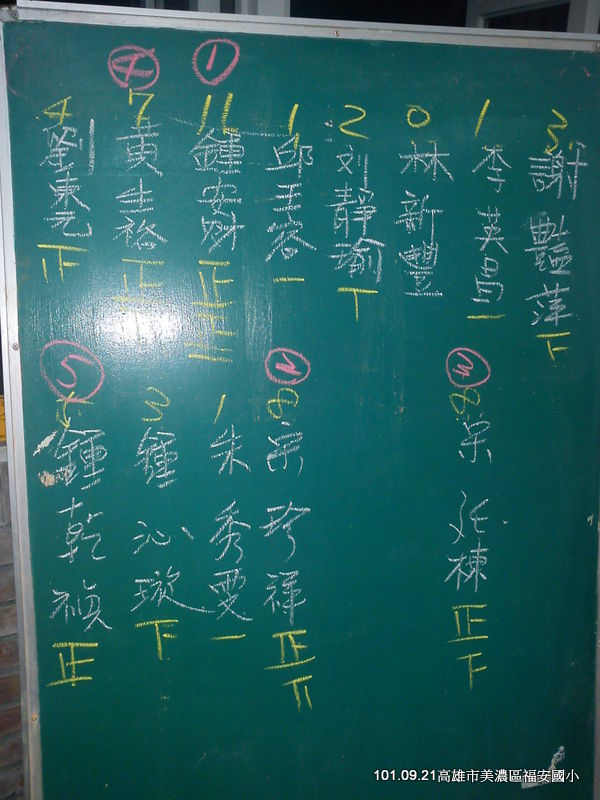 3 謝艷萍 下
1 李英昌 一
0 林新豐
2 刘靜瑜 丅
1 邱玉容 一
① 11 鍾安財 正正一
④ 7 黃生裕 正丅
4 劉東元
③ 8 宋廷棟 正下
② 8 宋珍祥 正
1 朱秀雯 一
3 鍾沁璇 下
⑤ 鍾乾禎 正
101.09.21高雄市美濃區福安國小